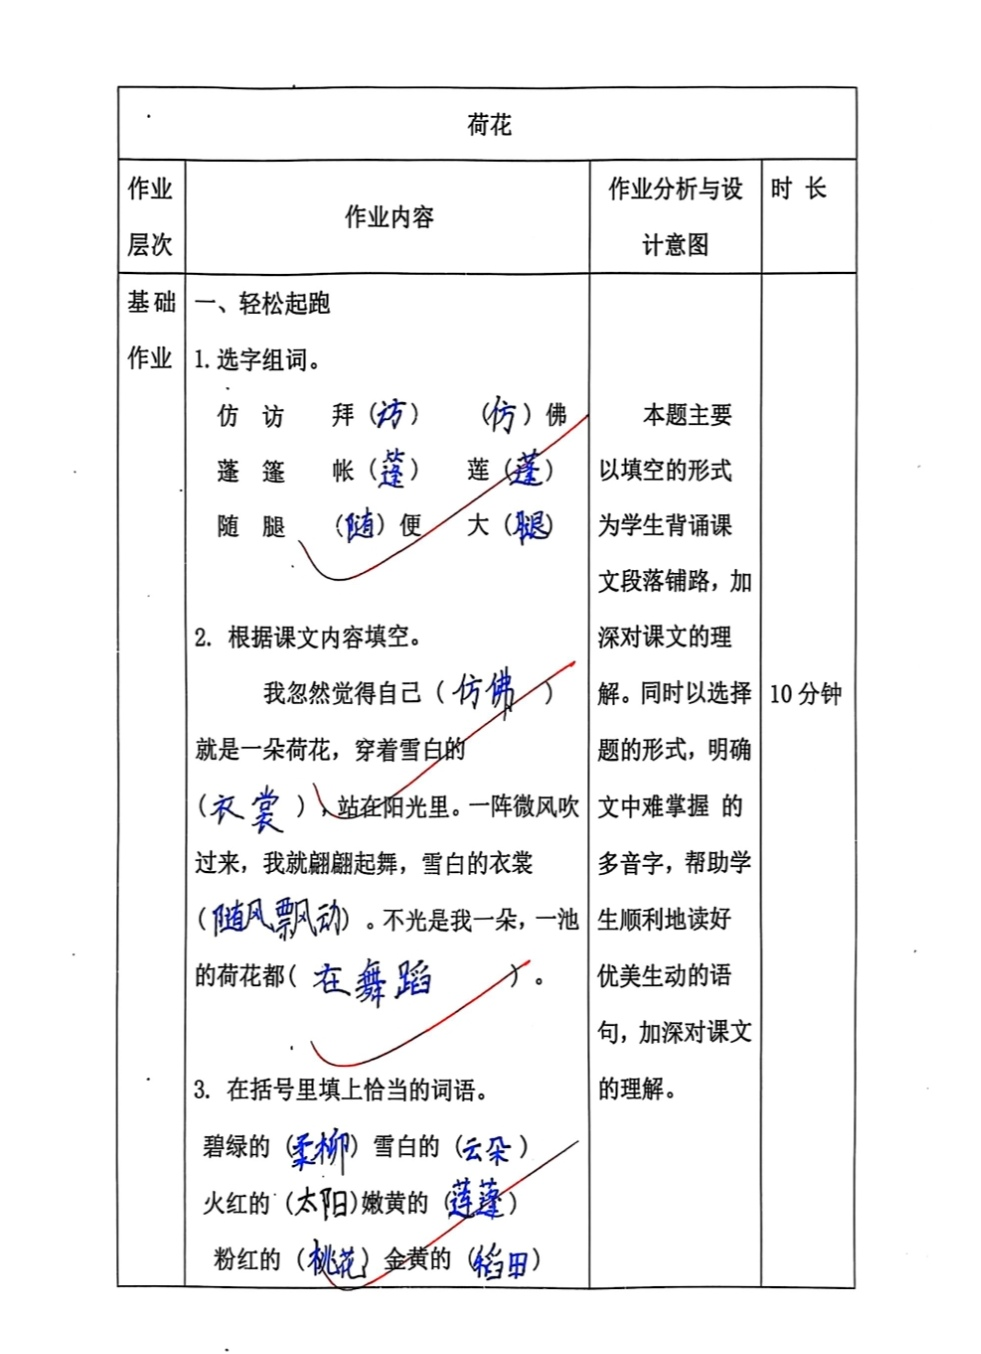 荷花
作业层次
作业内容
作业分析与设计意图
时 长
基础作业
一、轻松起跑
1.选字组词。
仿 访 拜（访） （仿）佛
蓬 篷 帐（篷） 莲（蓬）
随 腿 （随）便 大（腿）
2. 根据课文内容填空。
我忽然觉得自己（仿佛）
就是一朵荷花，穿着雪白的
（衣裳），站在阳光里。一阵微风吹
过来，我就翩翩起舞，雪白的衣裳
（随风飘动）。不光是我一朵，一池
的荷花都（在舞蹈）。
3. 在括号里填上恰当的词语。
碧绿的（柔柳）雪白的（云朵）
火红的（太阳）嫩黄的（莲蓬）
粉红的（桃花）金黄的（稻田）
本题主要
以填空的形式
为学生背诵课
文段落铺路，加
深对课文的理
解。同时以选择
题的形式，明确
文中难掌握 的
多音字，帮助学
生顺利地读好
优美生动的语
句，加深对课文
的理解。
10 分钟